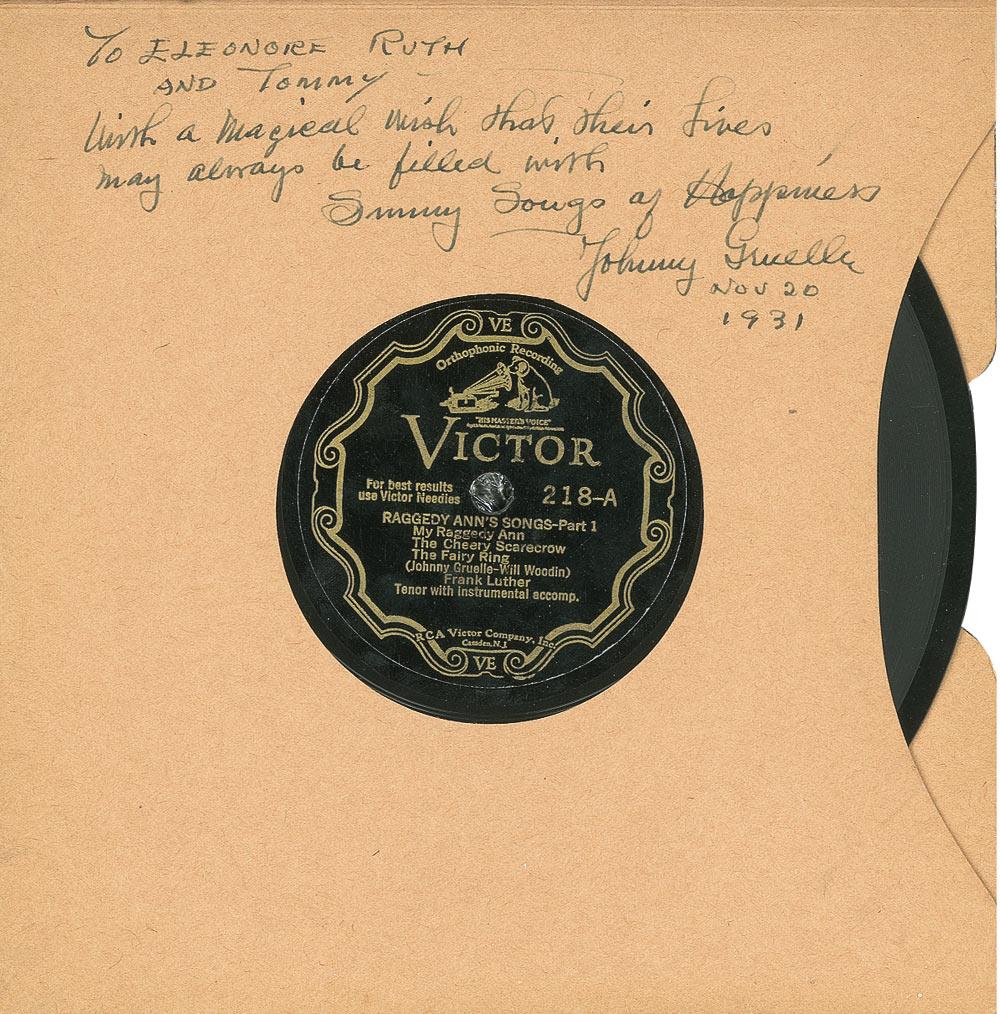 To ELEONORE RUTH
AND Tommy
With a Magical Wish that their Lives
may always be filled with
Sunny Songs of Happiness
Johnny Gruelle
NOV 20
1931
VE
Orthophonic Recording
"HIS MASTER'S VOICE"
VICTOR
For best results
use Victor Needles
218-A
RAGGEDY ANN'S SONGS-Part 1
My Raggedy Ann
The Cheery Scarecrow
The Fairy Ring
(Johnny Gruelle-Will Woodin)
Frank Luther
Tenor with instrumental accomp.
RCA Victor Company, Inc.
Camden, N.J.
VE